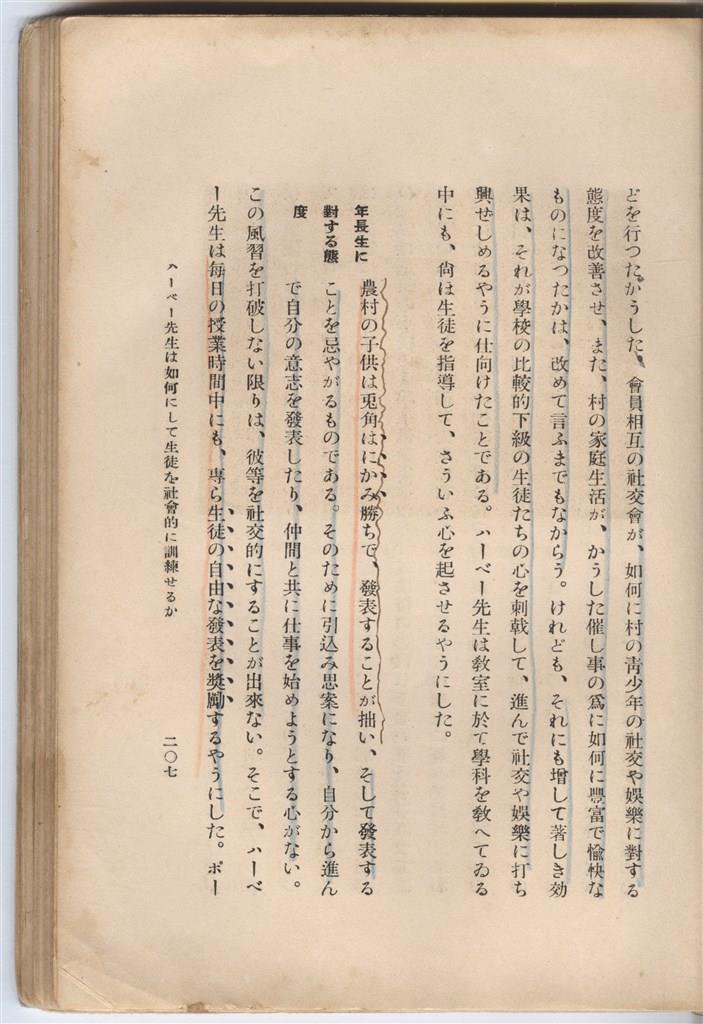 どを行つた。かうした、會員相互の社交會が、如何に村の靑少年の社交や娛樂に對する
態度を改善させ、また、村の家庭生活が、かうした催し事の爲に如何に豐富で愉快な
ものになつたかは、改めて言ふまでもなからう。けれども、それにも增して著しき効
果は、それが學校の比較的下級の生徒たちの心を刺戟して、進んで社交や娛樂に打ち
興ぜしめるやうに仕向けたことである。ハーベー先生は敎室に於て學科を敎へてゐる
中にも、尙ほ生徒を指導して、さういふ心を起させるやうにした。
年長生に
對する態
度
農村の子供は兎角はにかみ勝ちで、發表することが拙い、そして發表する
ことを忌やがるものである。そのために引込み思案になり、自分から進ん
で自分の意志を發表したり、仲間と共に仕事を始めようとする心がない。
この風習を打破しない限りは、彼等を社交的にすることが出來ない。そこで、ハーベ
ー先生は每日の授業時間中にも、專ら生徒の自由な發表を獎勵するやうにした。ポー
ハーベー先生は如何にして生徒を社會的に訓練せるか
二〇七